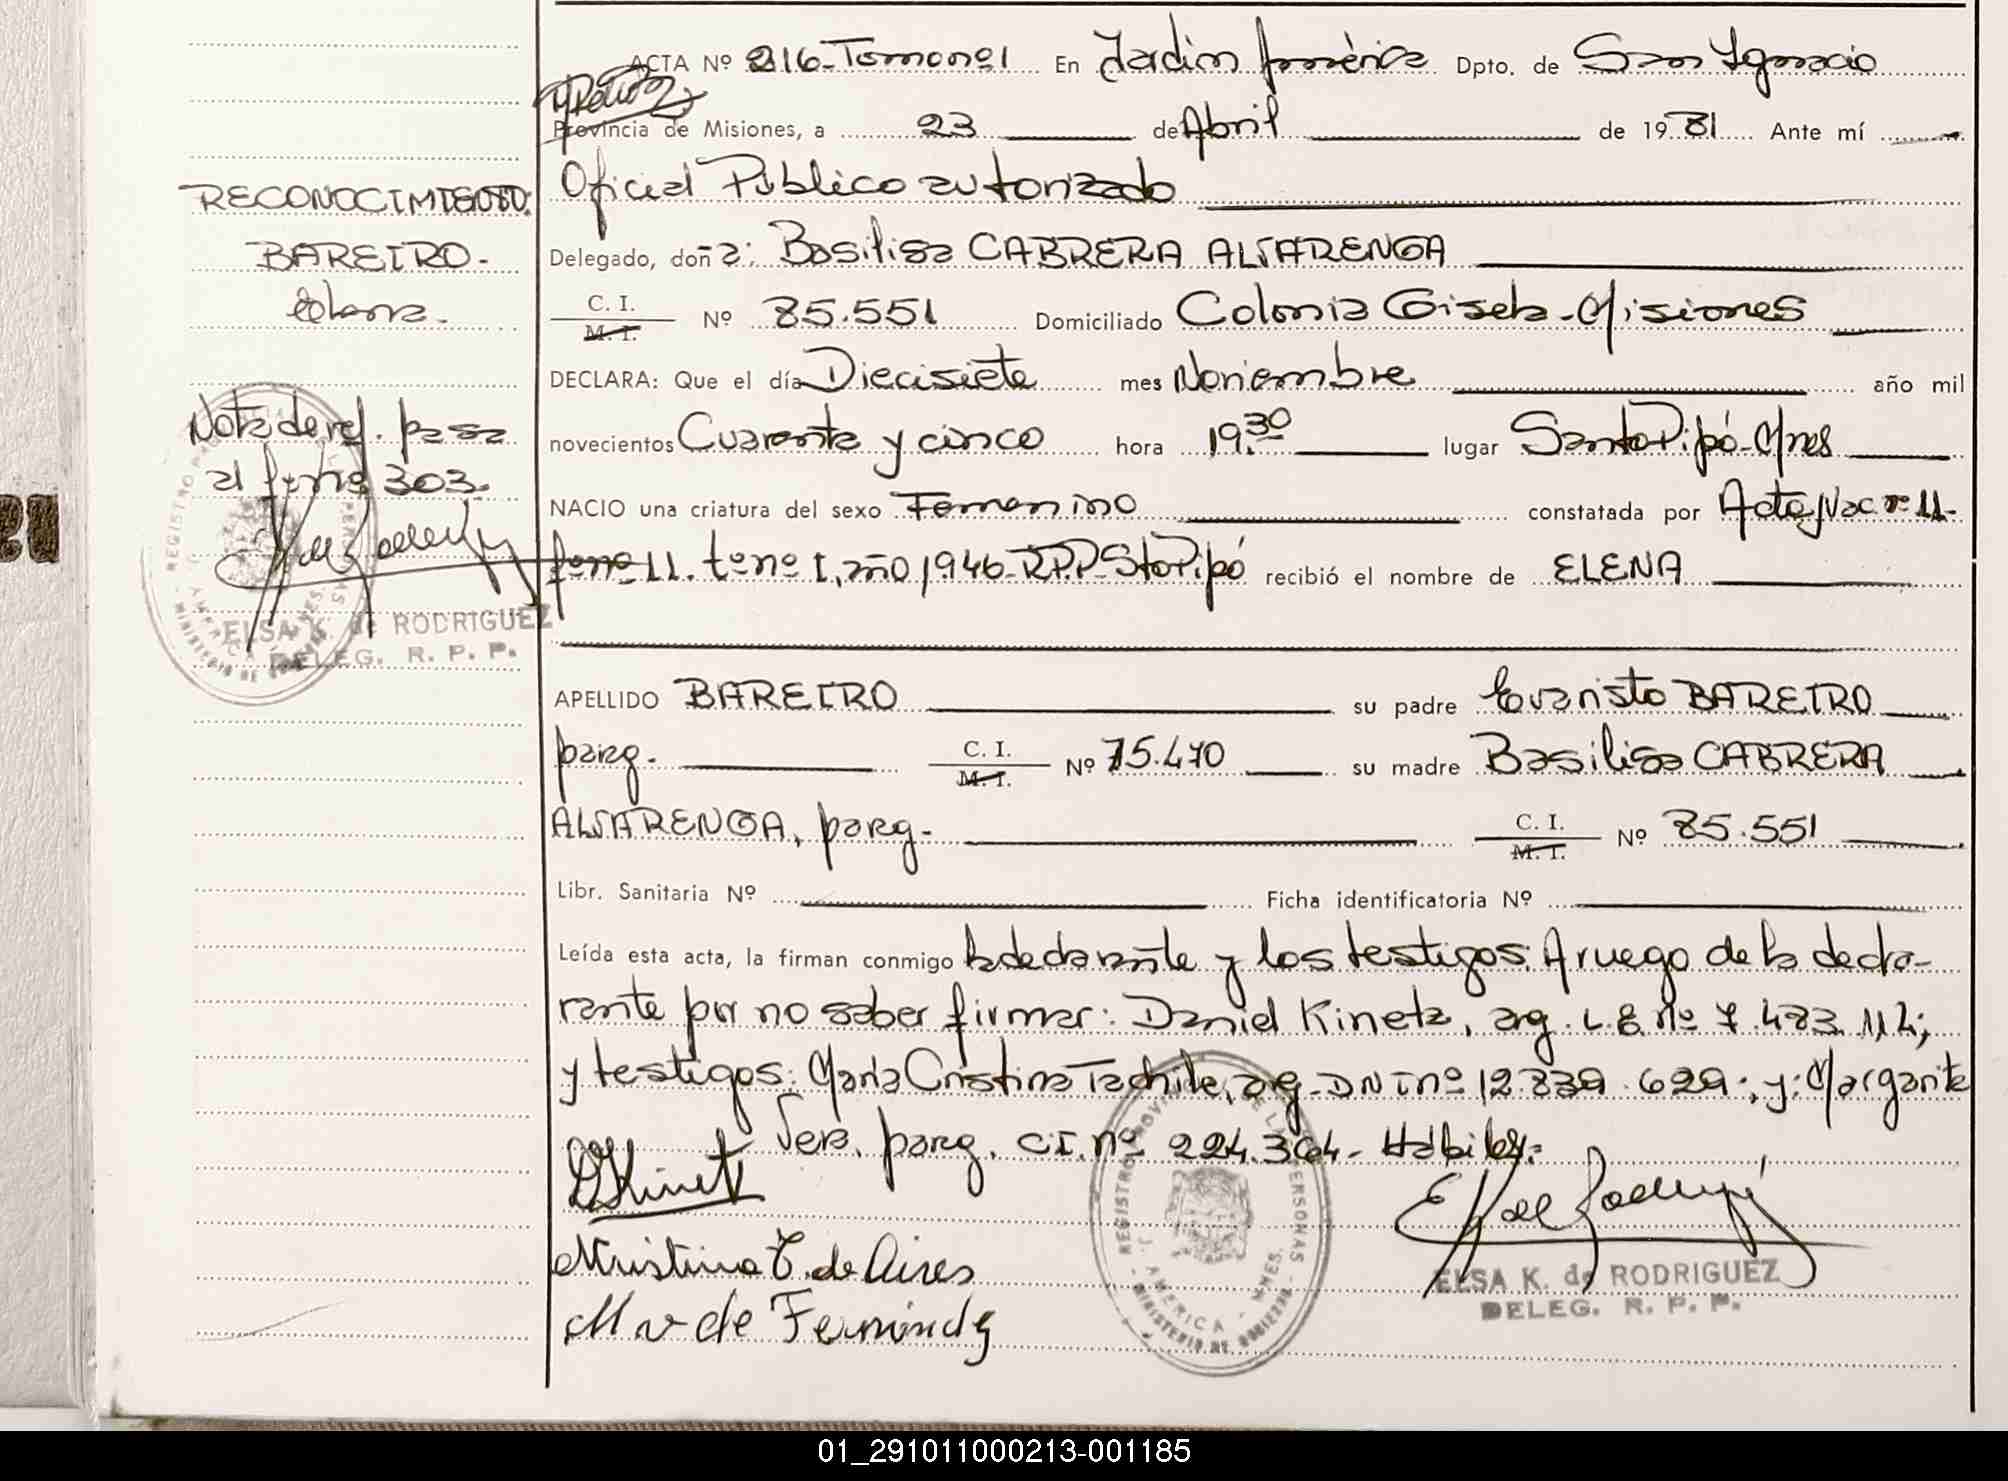 ACTA Nº 216-Tomo nº1 En Jardín América Dpto. de San Ignacio
Provincia de Misiones, a 23 de Abril de 1981 Ante mí
Oficial Público autorizado
Delegado, doña: Basilisa CABRERA ALVARENGA
C. I.
M. I.
Nº 85.551 Domiciliado Colonia Gisela-Misiones
DECLARA: Que el día Diecisiete mes Noviembre año mil
novecientos Cuarenta y cinco hora 19.30 lugar Santo Pipó-Mnes
NACIO una criatura del sexo Femenino constatada por Acta Nac nº 11-
fº nº 11. tº nº I, año 1946-R.P.P-Sto Pipó recibió el nombre de ELENA
APELLIDO BAREIRO su padre Evaristo BAREIRO
parg. C. I. M. I. Nº 75.470 su madre Basilisa CABRERA
ALVARENGA, parg- C. I. M. I. Nº 85.551
Libr. Sanitaria Nº Ficha identificatoria Nº
Leída esta acta, la firman conmigo la declarante y los testigos. A ruego de la decla-
rante por no saber firmar: Daniel Kineta, arg. L.E. nº 7.483.112;
y testigos: María Cristina Tachile, arg-DNI nº 12.839.629; y: Margarita
Vera, parg. CI. nº 224.364- Hábiles.-
RECONOCIMIENTO:
BAREIRO-
Elena.
Nota de ref. pasa
al fº nº 303.
ELSA K. de RODRIGUEZ
DELEG. R. P. P.
REGISTRO PROVINCIAL DE LAS PERSONAS
J. AMERICA - MNES.
MINISTERIO DE GOBIERNO
Mristina T. de Aires
M v de Fernández
ELSA K. de RODRIGUEZ
DELEG. R. P. P.
01_291011000213-001185